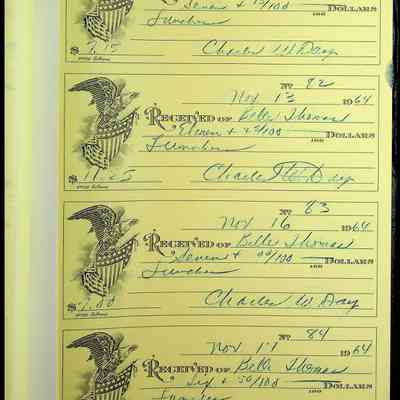 Seven + 15/100 DOLLARS
Lunches
$ 7.15 Charles W. Day
No. 82
Nov 13 1964
RECEIVED OF Belle Thomas
Eleven + 25/100 DOLLARS
Lunches
$ 11.25 Charles W. Day
No. 83
Nov 16 1964
RECEIVED OF Belle Thomas
Seven + 00/100 DOLLARS
Lunches
$ 7.00 Charles W. Day
No. 84
Nov 17 1964
RECEIVED OF Belle Thomas
Six + 50/100 DOLLARS
Lunches